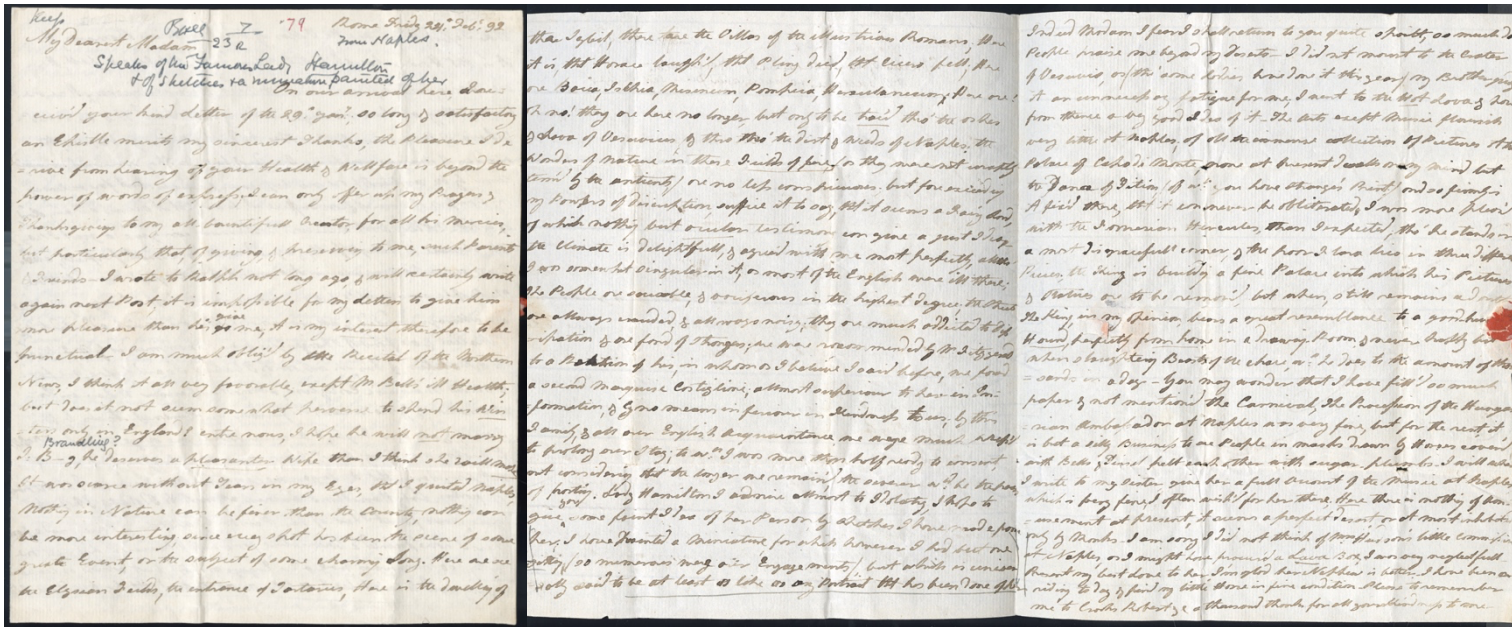 Keep
Ball 7 '79 Rome Fridy 24th Feb: 92
My Dearest Madam 23 a from Naples.
Speaks of the Famous Lady Hamilton
& of Sketches & a miniature painted of her
On our arrival here I re-
-ceiv'd your kind Letter of the 29th Jan:y, so long & satisfactory
an Epistle merits my sincerest Thanks, the Pleasure I de
-rive from hearing of your Health & Wellfare is beyond the
power of words to express, I can only offer up my Prayers &
Thanksgivings to my all bountifull Creator for all his mercies,
but particularly that of giving & preserving to me, such Parents
& Friends - I wrote to Ralph not long ago, & will certainly write
again next Post, it is impossible for my Letters to give him
more pleasure than his give me, it is my interest therefore to be
punctual - I am much oblig'd by the Recital of the Northern
News, I think it all very favorable, except Mr Bell's ill Health,
but does it not seem somewhat perverse to spend his Win
-ters only in England? entre nous, I hope he will not marry
Brandling?
B-g, he deserves a pleasanter Wife than I think she will make
It was not without Tears in my Eyes, that I quitted Naples,
Nothing in Nature can be finer than the Country, nothing can
be more interesting since every spot has been the scene of some
great Event, or the subject of some charming Song. Here are
the Elysian Fields, the entrance of Tartarus, Here is the dwelling of
the there are the Villas of the illustrious Romans, Here
it is, that Horace laugh'd, that Pliny died, that Cicero fell, Here
are Baia, Ischia, Misenum, Pompeia, Herculaneum; Here are!
Oh no! they are here no longer but only to be trac'd thro' the ashes
& Lava of Vesuvius & thro' the Dirt & Weeds of Naples, the
Wonders of Nature in these Fields of fire, as they were not improperly
term'd by the antients, are no less conspicuous. but far exceeding
my Powers of Description, suffice it to say, that it seems a Fairy Land,
of which nothing but ocular testimony can give a just Idea,
the Climate is delightfull, & agreed with me most perfectly,
I was somewhat singular in it, as most of the English were ill there;
the People are sociable, & vociferous in the highest degree the Streets
are allways crowded & allways noisy, they are much addicted to
& are fond of Strangers; we were recommended by
to a Relation of his, in whom as I believe I said before, we found
a second Marquise allmost superiour to her in In-
-formation, & by no means inferiour in Kindness to us, by this
Family, & all our English Acquaintance we were much
to prolong our Stay, to wch I was more than half ready to consent
but considering that the longer we remain'd, the severer wd be the pang
of parting. Lady Hamilton I admire allmost to Idolatry, I hope to
give you some faint Idea of her Person by Sketches I have made from
her, I have painted a Miniature for which however I had but one
sitting, (so numerous were our Engagements) but which is univer
-sally said to be at least as like as any Portrait that has been done of her
Indeed Madam I fear I shall return to you quite spoilt, so much do
People praise me beyond my Deserts. I did not mount to the Crater
of Vesuvius, as (tho' some Ladies have done it this year) my Brother
it an unnecessary fatigue for me, I went to the Hot Lava, & had
from thence a very good Idea of it - The Arts except Music flourish
very little at Naples, of all the immense collection of Pictures at the
Palace of Capo di Monte, none at Present dwells on my mind but
the Danae of Titian, (of wch you have Strange's Print) and so firmly is
it fix'd there, that it can never be obliterated, I was more pleas'd
with the Farnesian Hercules, than I expected, tho' he stands in
a most disgracefull corner, & the poor Flora lies in three different
Pieces, the King is building a fine Palace into which his Pictures
& Statues are to be remov'd, but when, still remains a
The King, in my opinion bears a great resemblance to a good
Hound, perfectly from home in a drawing Room, & never happy but
when slaughtering Beasts of the chase, wch he does to the amount of
-sands in a day - You may wonder that I have fill'd so much
paper & not mentioned the Carnival, The Procession of the Hunga
-rian Ambassador at Naples was very fine, but for the rest, it
is but a silly Business to see People in masks drawn by Horses cover'd
with Bells & Tinsel pelt each other with sugar plumbs. I will
I write to my Sister give her a full Account of the Music at Naples
which is very fine, I often wish'd for her there, Here there is nothing of
-usement at present, it seems a perfect Desart, or at most inhabited
only by Monks. I am sorry I did not think of little commission
at Naples, as I might have procured a Lava Box, I am very neglectfull
Present my best to her. I am glad her is better. I have been a
riding to day & find my little Horse in fine condition. Please to remember
me to a thousand thanks for all your kindness to me